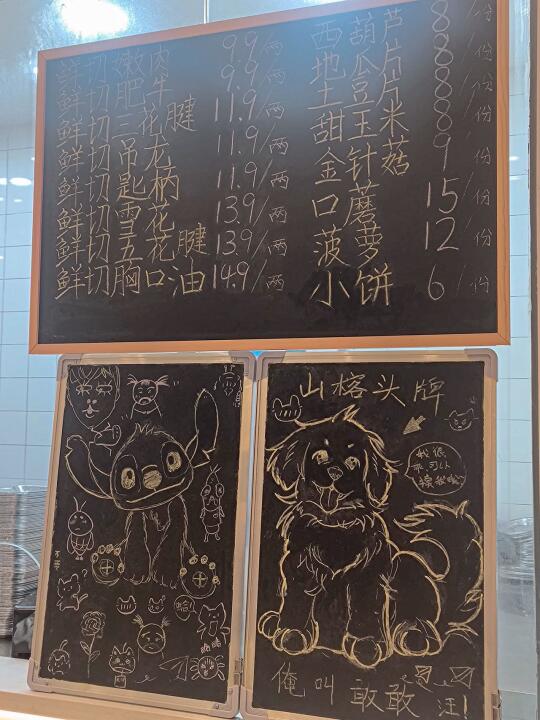 鲜切嫩肉 9.9/两
鲜切肥牛 9.9/两
鲜切三花腱 11.9/两
鲜切吊龙 11.9/两
鲜切匙柄 11.9/两
鲜切雪花 13.9/两
鲜切五花腱 13.9/两
鲜切胸口油 14.9/两
西葫芦 8/份
地瓜片 8/份
土豆片 8/份
甜玉米 8/份
金针菇 9/份
口蘑 15/份
菠萝 12/份
小饼 6/份
山榙头牌
可以
俺叫敢敢 汪!